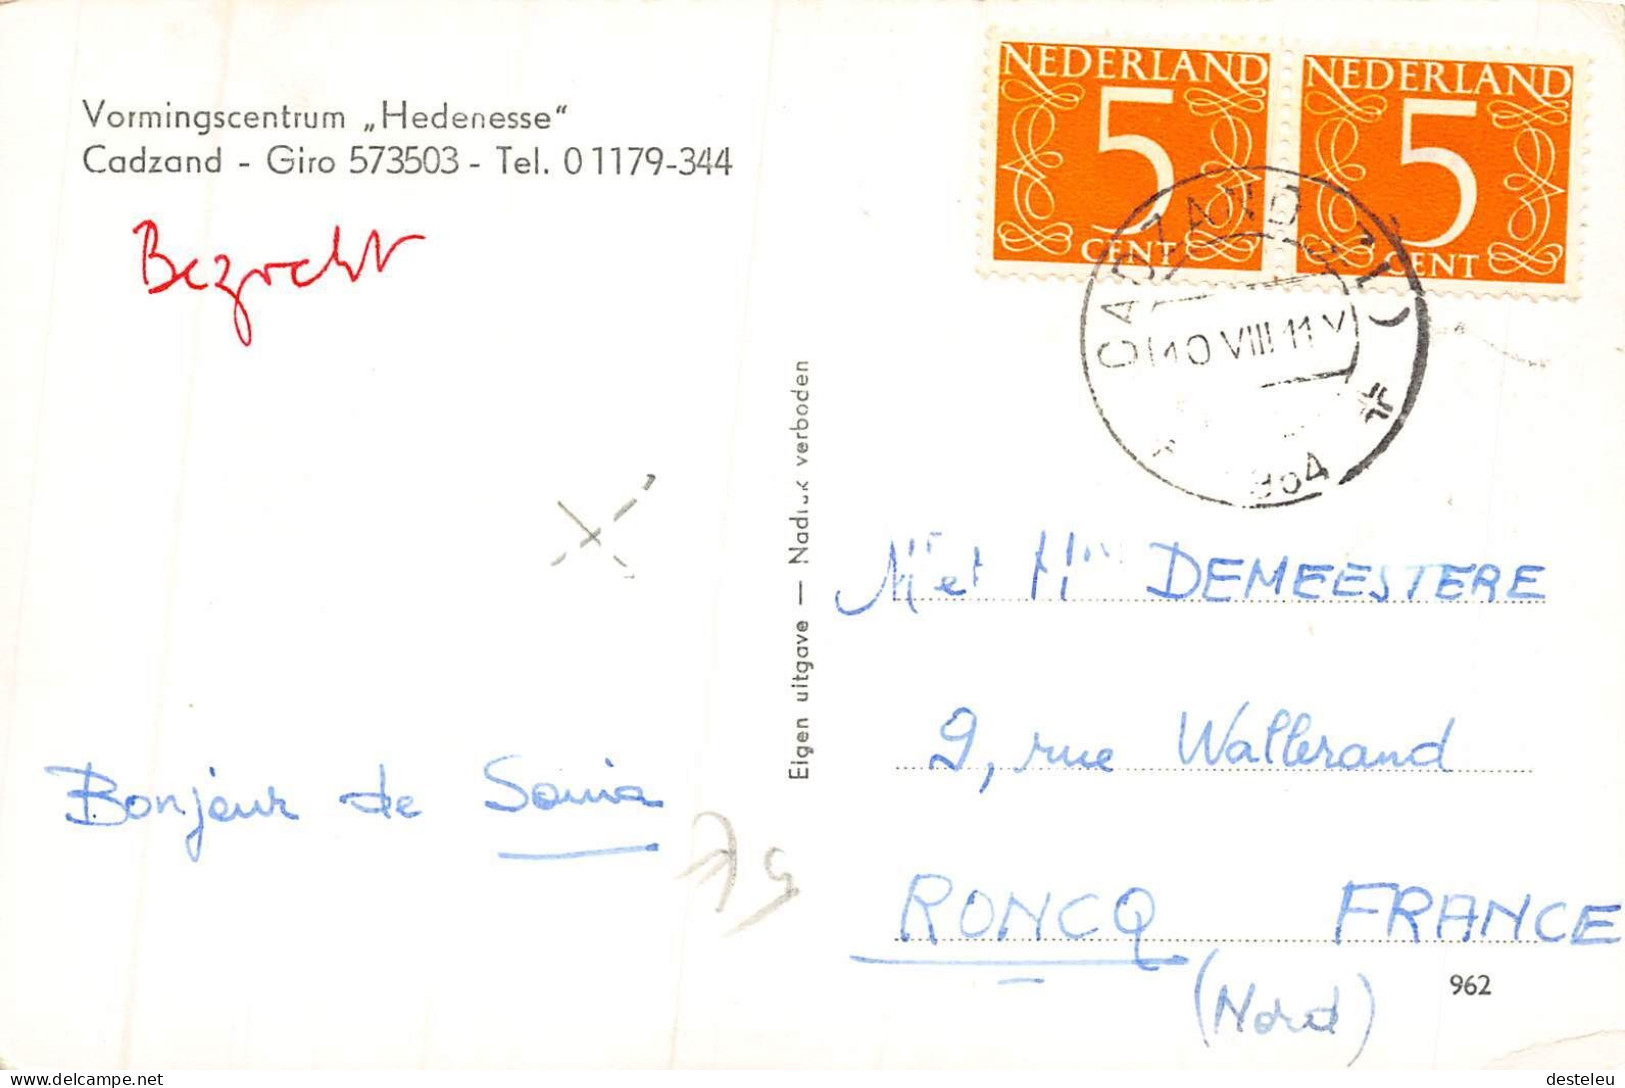 Vormingscentrum „Hedenesse“
Cadzand - Giro 573503 - Tel. 01179-344
Bezocht
Bonjeur de Sonia
Eigen uitgave — Nadruk verboden
NEDERLAND
5
CENT
NEDERLAND
5
CENT
CADZAND (ZL)
10 VIII 11 V
Mr et Mme DEMEESTERE
9, rue Wallerand
RONCQ FRANCE
(Nord)
962
desteleu